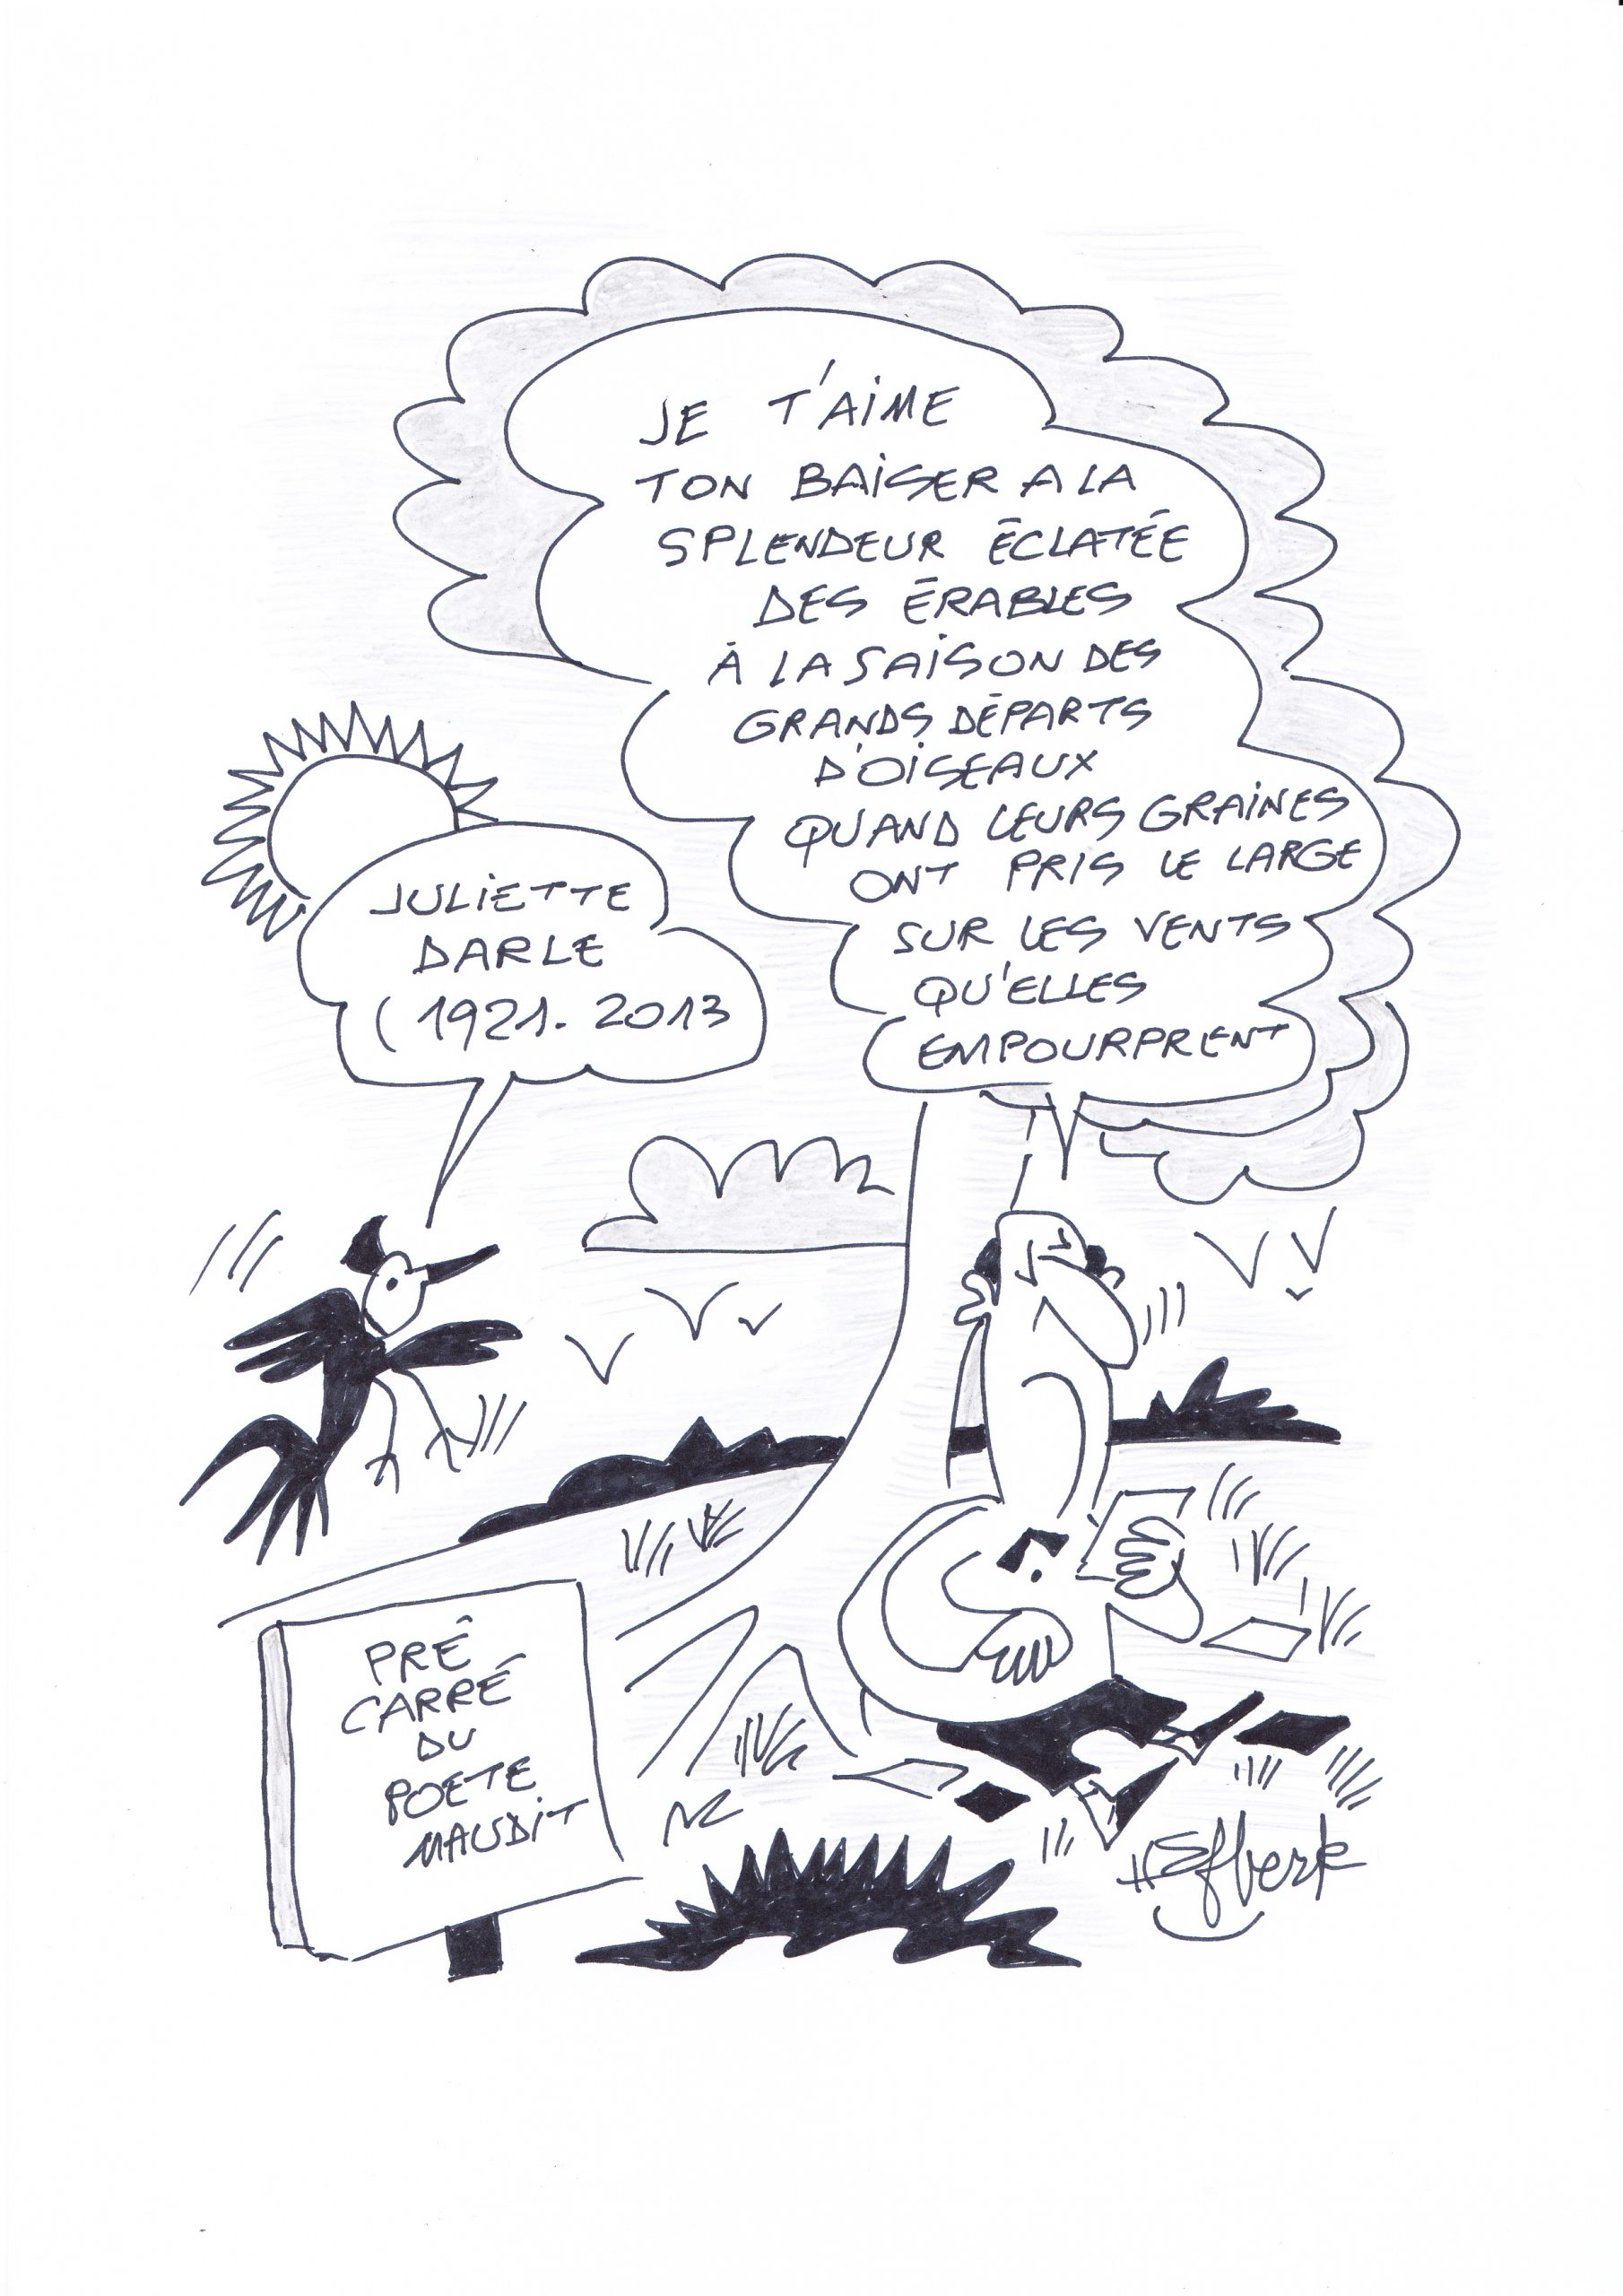 JE T'AIME
TON BAISER A LA
SPLENDEUR ÉCLATÉE
DES ÉRABLES
À LA SAISON DES
GRANDS DÉPARTS
D'OISEAUX
QUAND LEURS GRAINES
ONT PRIS LE LARGE
SUR LES VENTS
QU'ELLES
EMPOURPRENT
JULIETTE
DARLE
(1921. 2013
PRÉ
CARRÉ
DU
POETE
MAUDIT